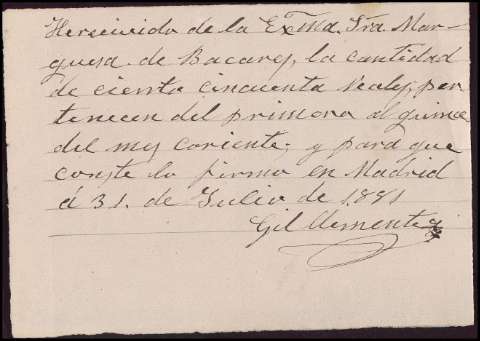 Herseivido de la Exma Sra Mar-
quesa de Bacares, la cantidad
de cienta cincuenta reales, per
tenecen del primora al quince
del mes coriente; y para que
conste lo firmo en Madrid
á 31. de Julio de 1891
Gil Clemente